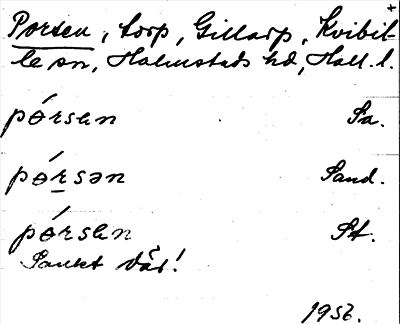 Porsen, torp, Gillarp, Kvibil-
le sn, Halmstads hd, Hall. l.
pórsen Sa.
pórsən Sand.
pórsen St.
Sankt där!
1956.